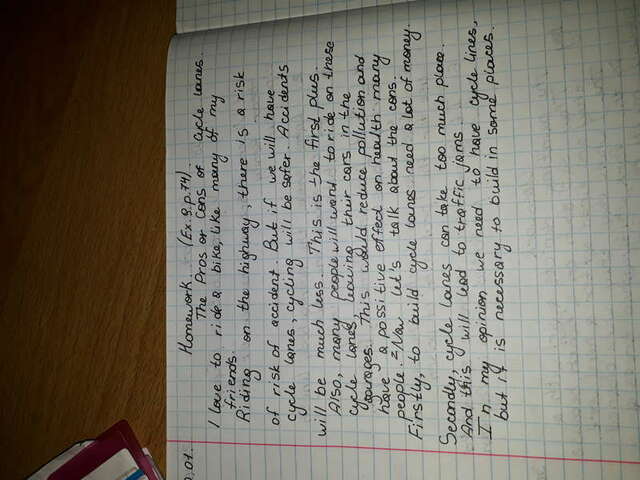 0.01. Homework. (Ex.9.p.74).
The Pros or Cons of cycle lanes.
I love to ride a bike, like many of my
friends.
Riding on the highway, there is a risk
of risk of accident. But if we will have
cycle lanes, cycling will be safer. Accidents
will be much less. This is the first plus.
Also, many people will want to ride on these
cycle lanes, leaving their cars in the
gourages. This would reduce pollution and
have a possitive effect on health many
people. Now let's talk about the cons.
Firstly, to build cycle lanes need a lot of money.
Secondly, cycle lanes can take too much place.
And this will lead to traffic jams.
In my opinion we need to have cycle lines,
but it is necessary to build in some places.